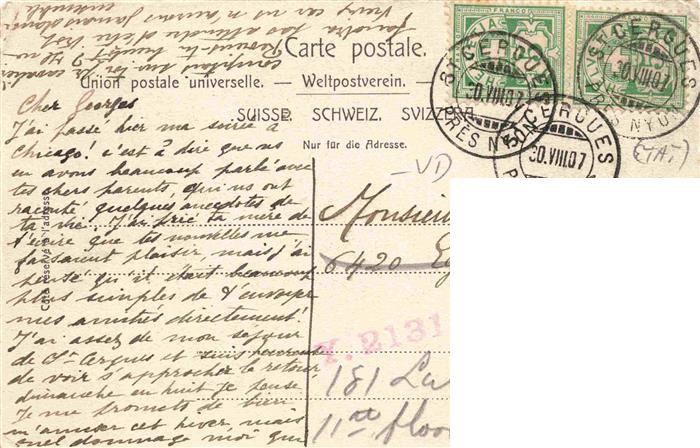 Carte postale.
Union postale universelle. — Weltpostverein.
SUISSE. SCHWEIZ. SVIZZERA
Nur für die Adresse.
Côté réservé à l'adresse
FRANCO
FRANCO
ST CERGUES
30.VIII.07
PRÈS NYON
ST CERGUES
30.VIII.07
PRÈS NYON
ST CERGUES
30.VIII.07
VD
Cher Georges
J'ai passé hier ma soirée à
Chicago! c'est à dire que nous
en avons beaucoup parlé avec
tes chers parents, qui ns ont
raconté quelques anecdotes de
ta vie. J'ai prié ta mère de
t'écrire que tes nouvelles me
faisaient plaisir, mais j'ai
pensé qu'il était beaucoup
plus simples de t'envoyer
mes amitiés directement!
J'ai assez de mon séjour
de St Cergues et suis heureuse
de voir s'approcher le retour,
dimanche en huit je pense
Je me promets de bien
m'amuser cet hiver, mais
quel dommage moi qui
Monsieur
6420
Y.2131
181 La
11th floor